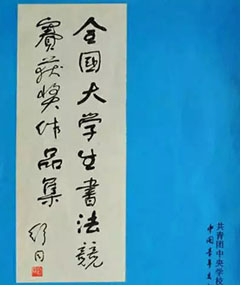 全国大学生书法竞
赛获奖作品集
舒同
共青团中央学校
中国青年